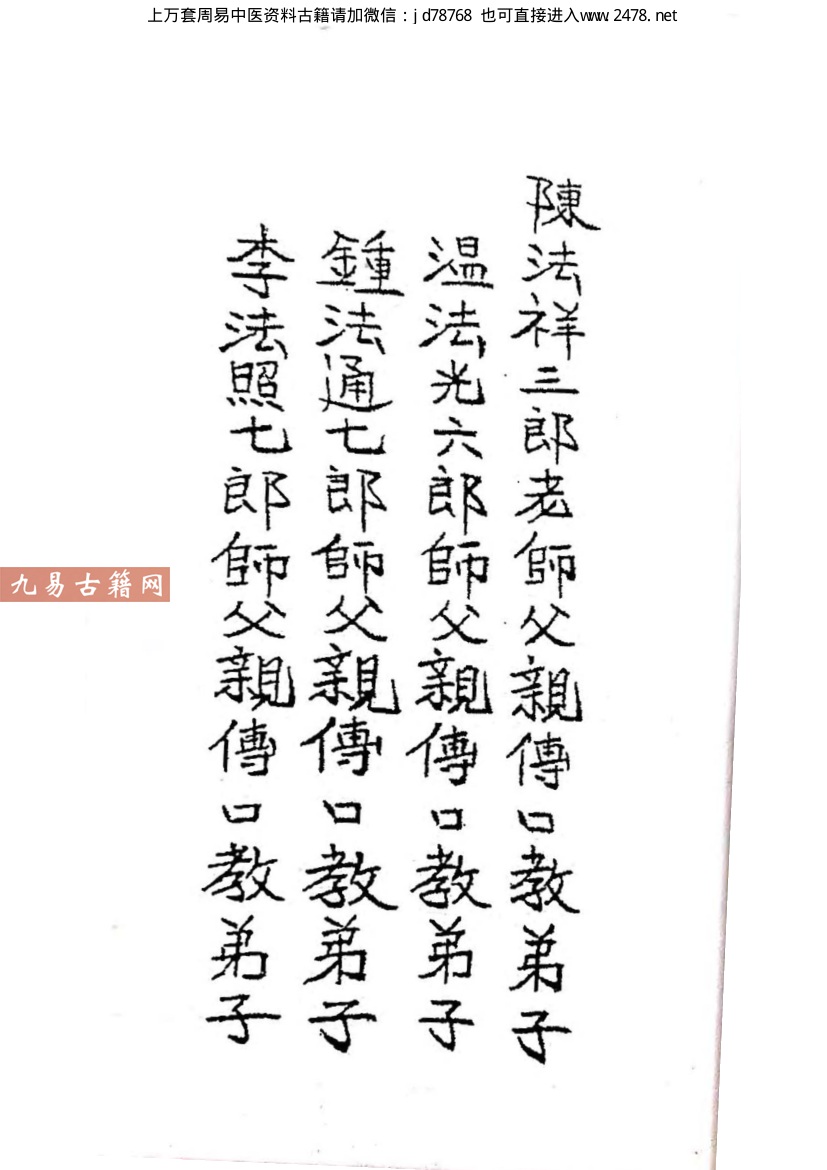 上万套周易中医资料古籍请加微信：jd78768 也可直接进入www.2478.net
陳法祥三郎老師父親傳口教弟子
温法光六郎師父親傳口教弟子
鍾法通七郎師父親傳口教弟子
李法照七郎師父親傳口教弟子
九易古籍网